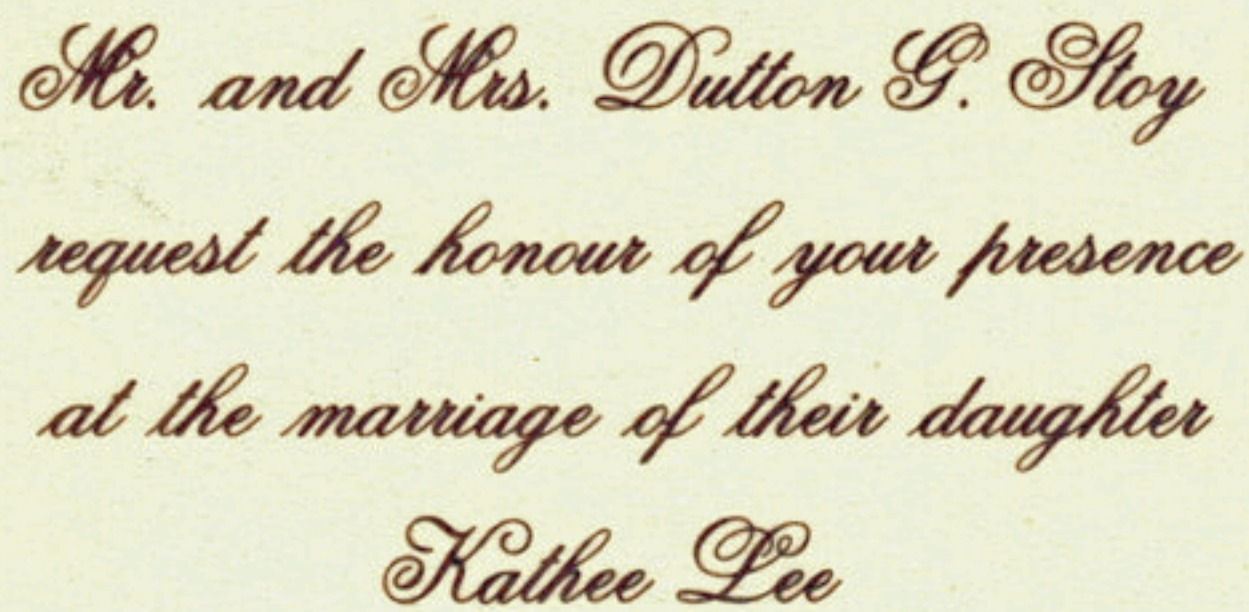 Mr. and Mrs. Dutton G. Stoy
request the honour of your presence
at the marriage of their daughter
Kathee Lee